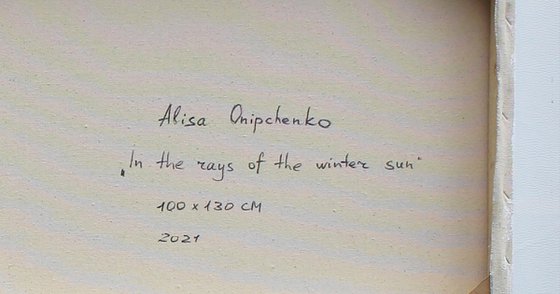 Alisa Onipchenko
„In the rays of the winter sun“
100 x 130 CM
2021